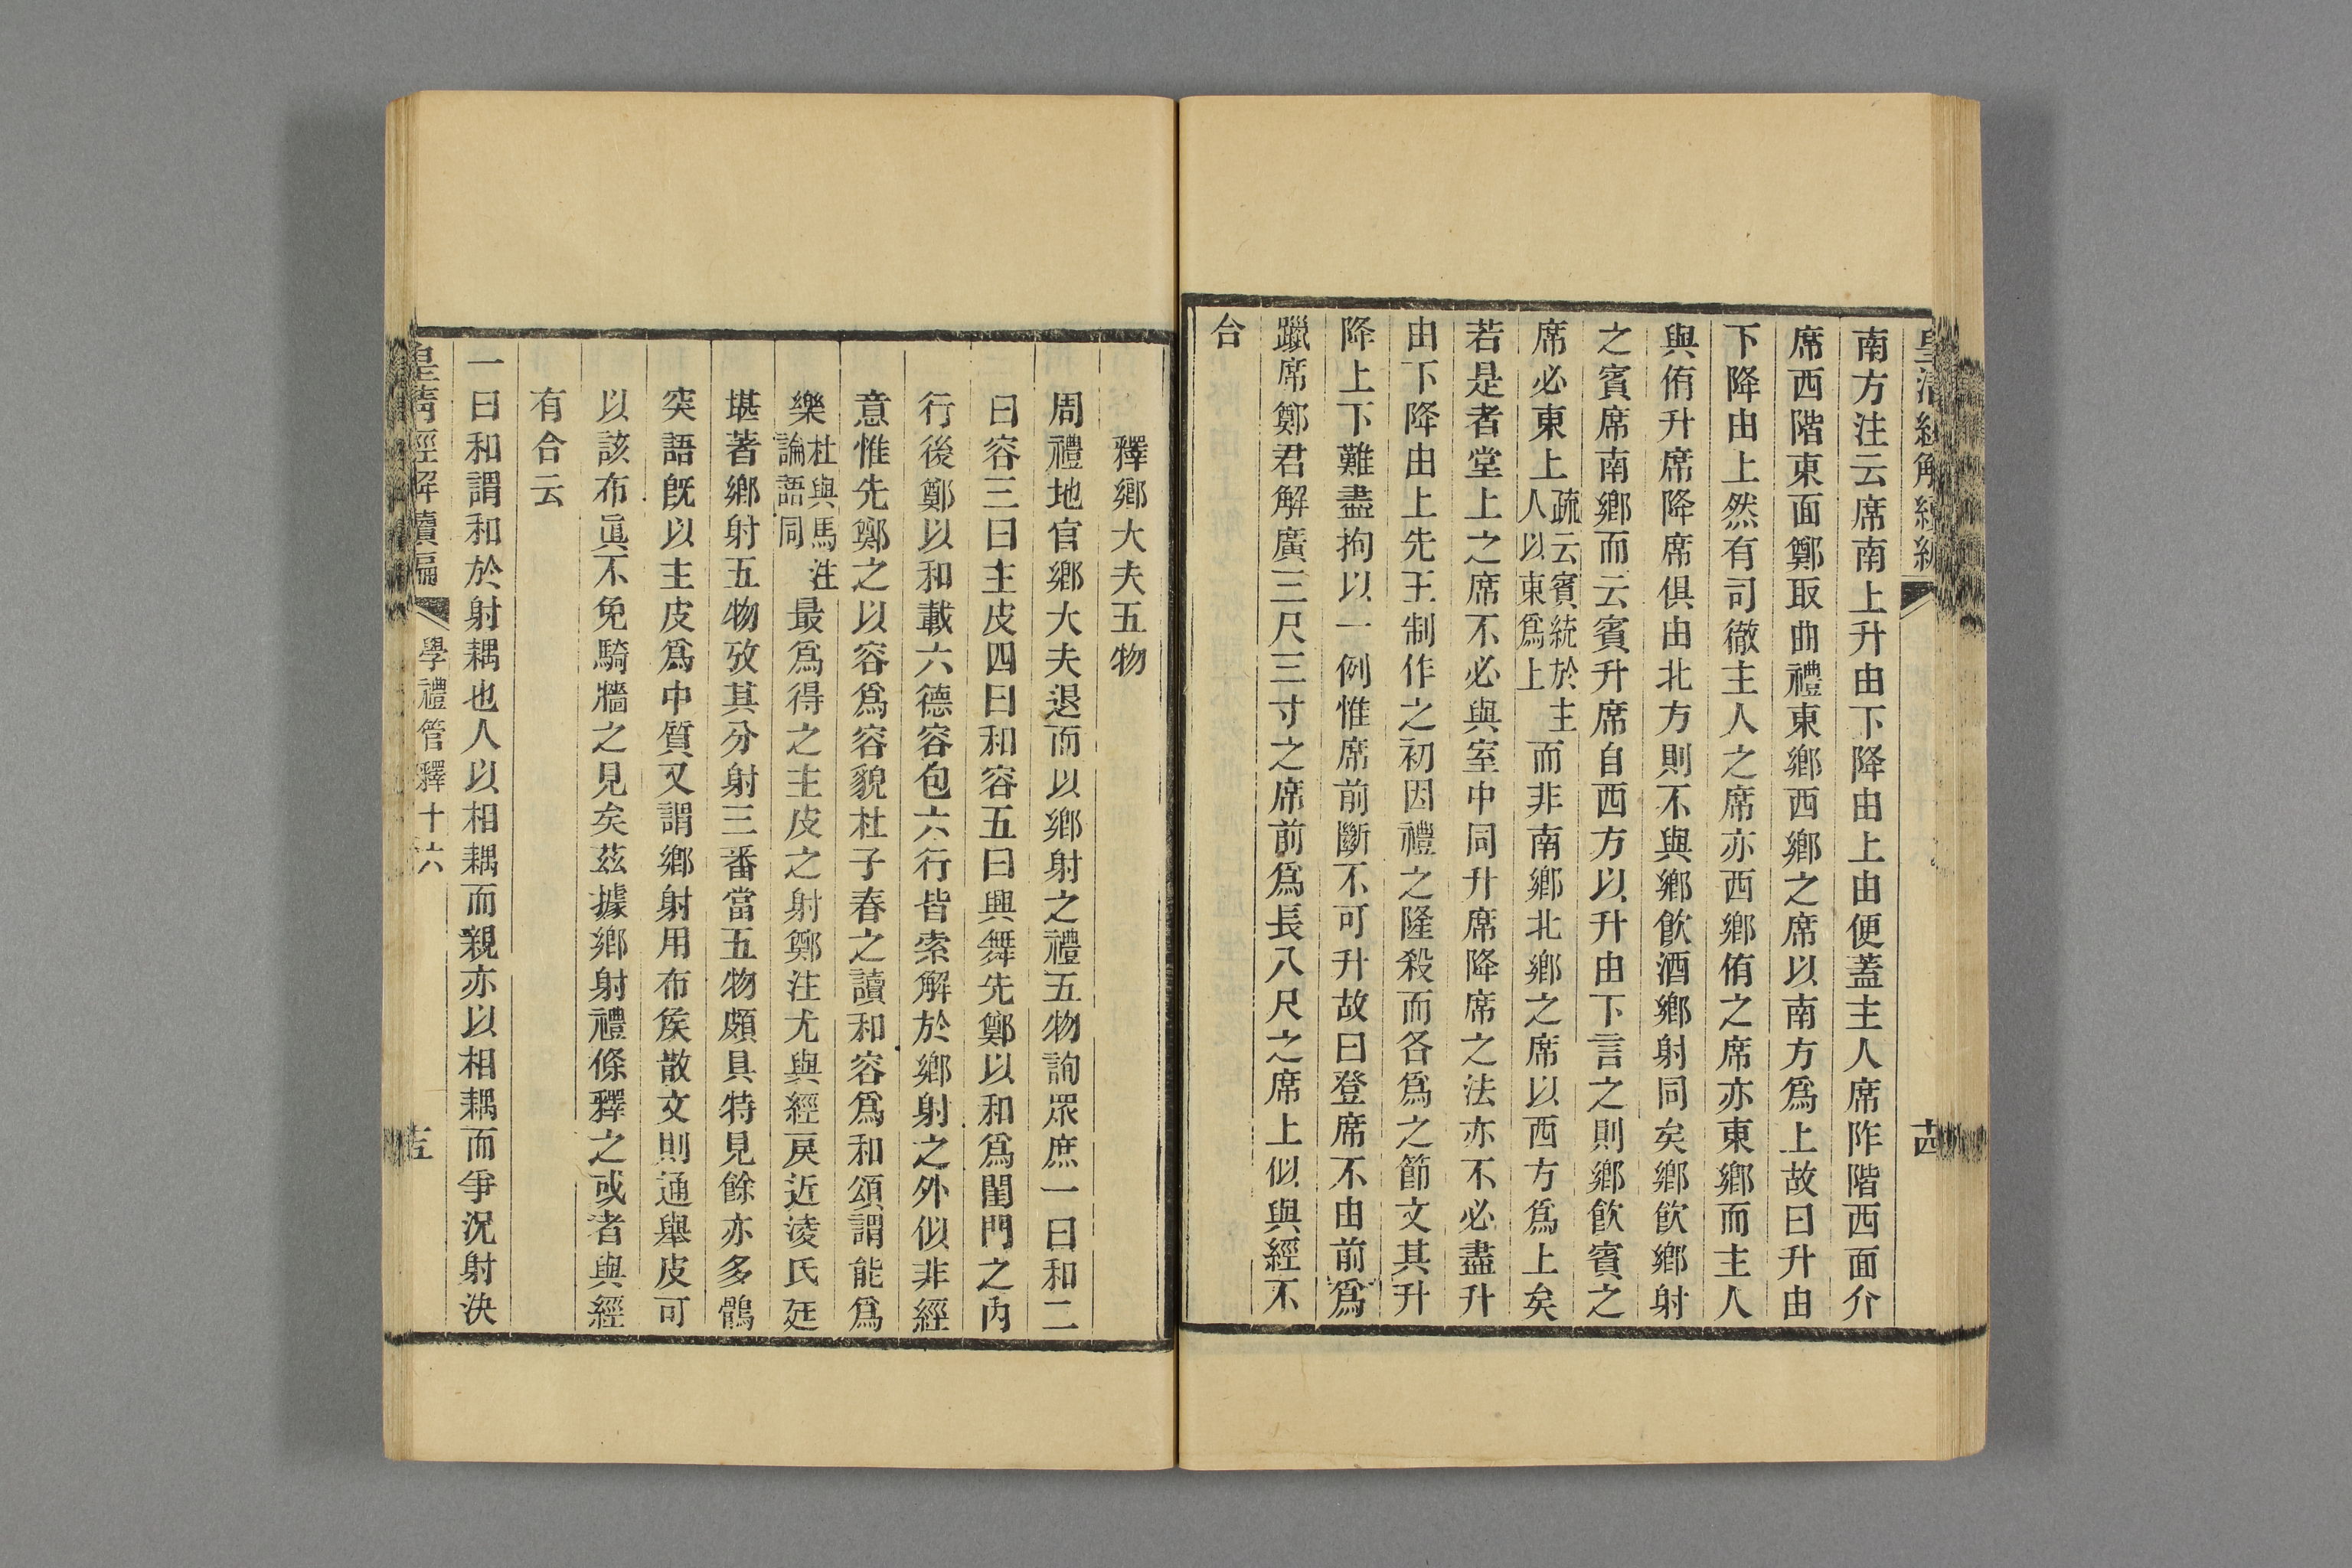 皇清經解續編
十四
南方注云席南上升由下降由上由便蓋主人席阼階西面介
席西階東面鄭取曲禮東鄉西鄉之席以南方爲上故曰升由
下降由上然有司徹主人之席亦西鄉侑之席亦東鄉而主人
與侑升席降席俱由北方則不與鄉飮酒鄉射同矣鄉飮鄉射
之賓席南鄉而云賓升席自西方以升由下言之則鄉飮賓之
席必東上疏云賓統於主人以東爲上而非南鄉北鄉之席以西方爲上矣
若是者堂上之席不必與室中同升席降席之法亦不必盡升
由下降由上先王制作之初因禮之隆殺而各爲之節文其升
降上下難盡拘以一例惟席前斷不可升故曰登席不由前爲
躐席鄭君解廣三尺三寸之席前爲長八尺之席上似與經不
合
釋鄉大夫五物
周禮地官鄉大夫退而以鄉射之禮五物詢眾庶一曰和二
曰容三曰主皮四曰和容五曰興舞先鄭以和爲閨門之內
行後鄭以和載六德容包六行皆索解於鄉射之外似非經
意惟先鄭之以容爲容貌杜子春之讀和容爲和頌謂能爲
樂杜與馬注論語同最爲得之主皮之射鄭注尤與經戾近淩氏廷
堪著鄉射五物攷其分射三番當五物頗具特見餘亦多鶻
突語旣以主皮爲中質又謂鄉射用布矦散文則通舉皮可
以該布眞不免騎牆之見矣茲據鄉射禮條釋之或者與經
有合云
一曰和謂和於射耦也人以相耦而親亦以相耦而爭況射決
皇清經解續編
學禮管釋十六
十五